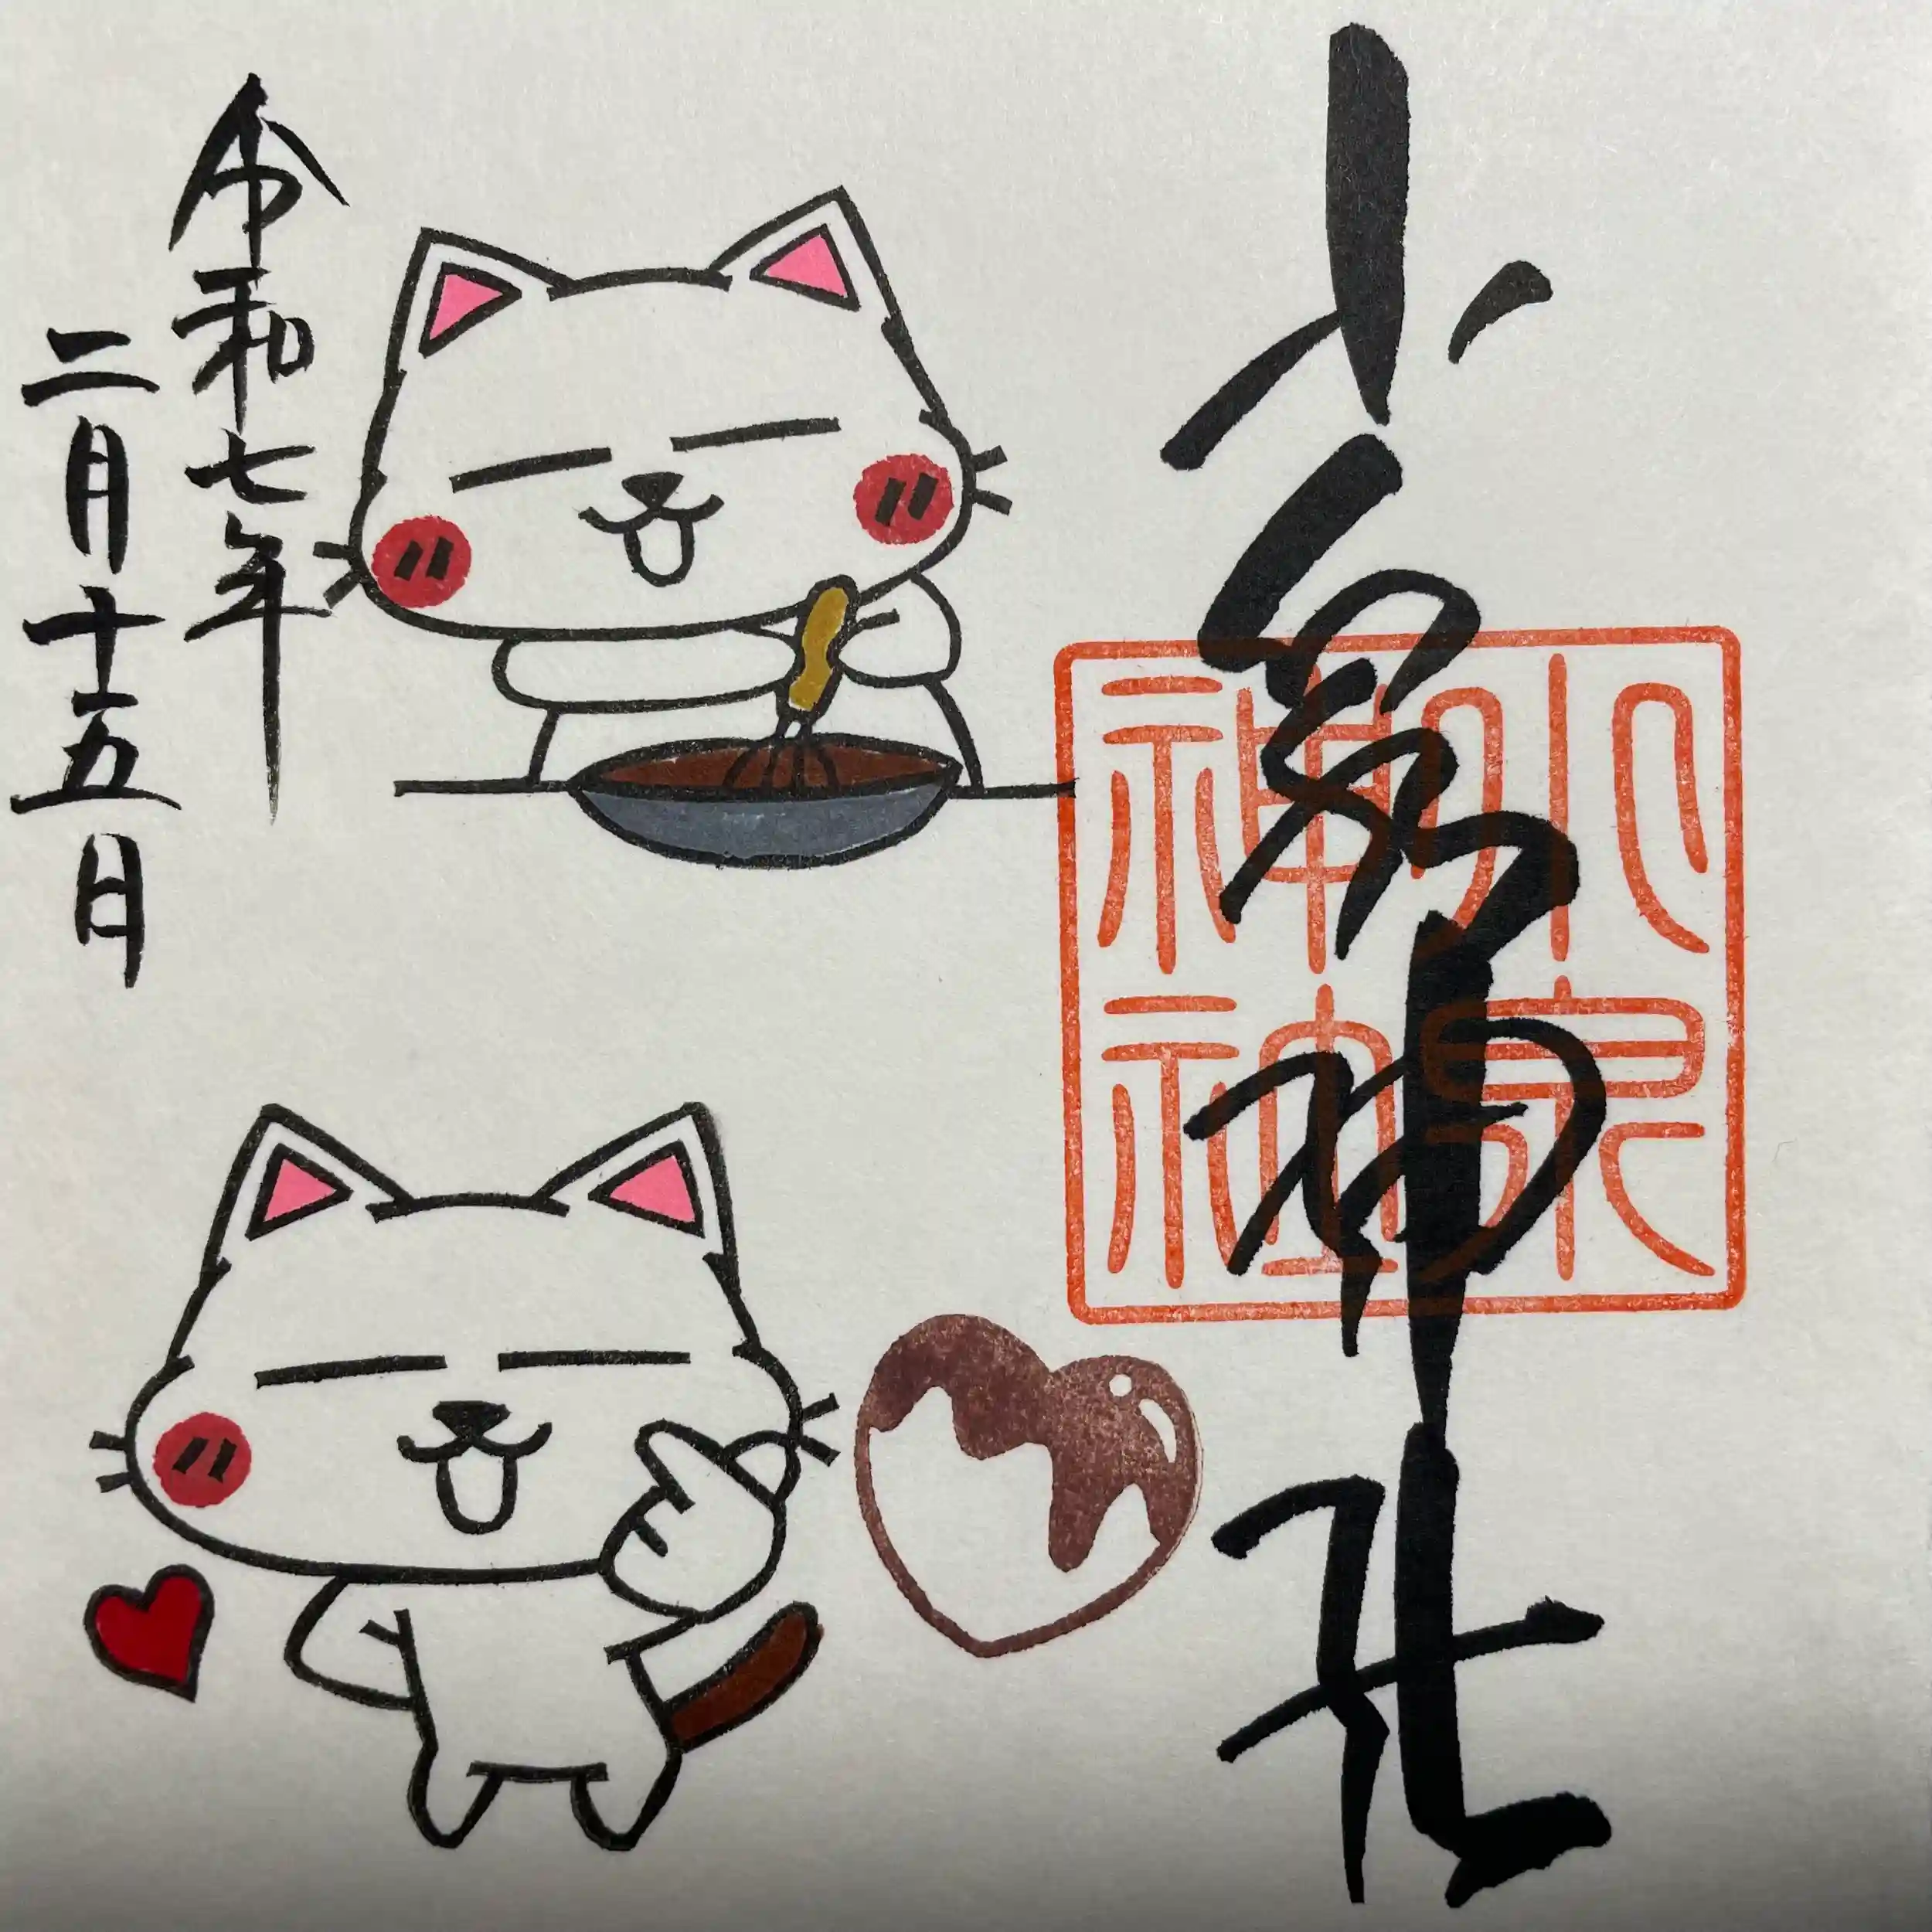 小泉神社
小泉神社
令和七年
二月十五日